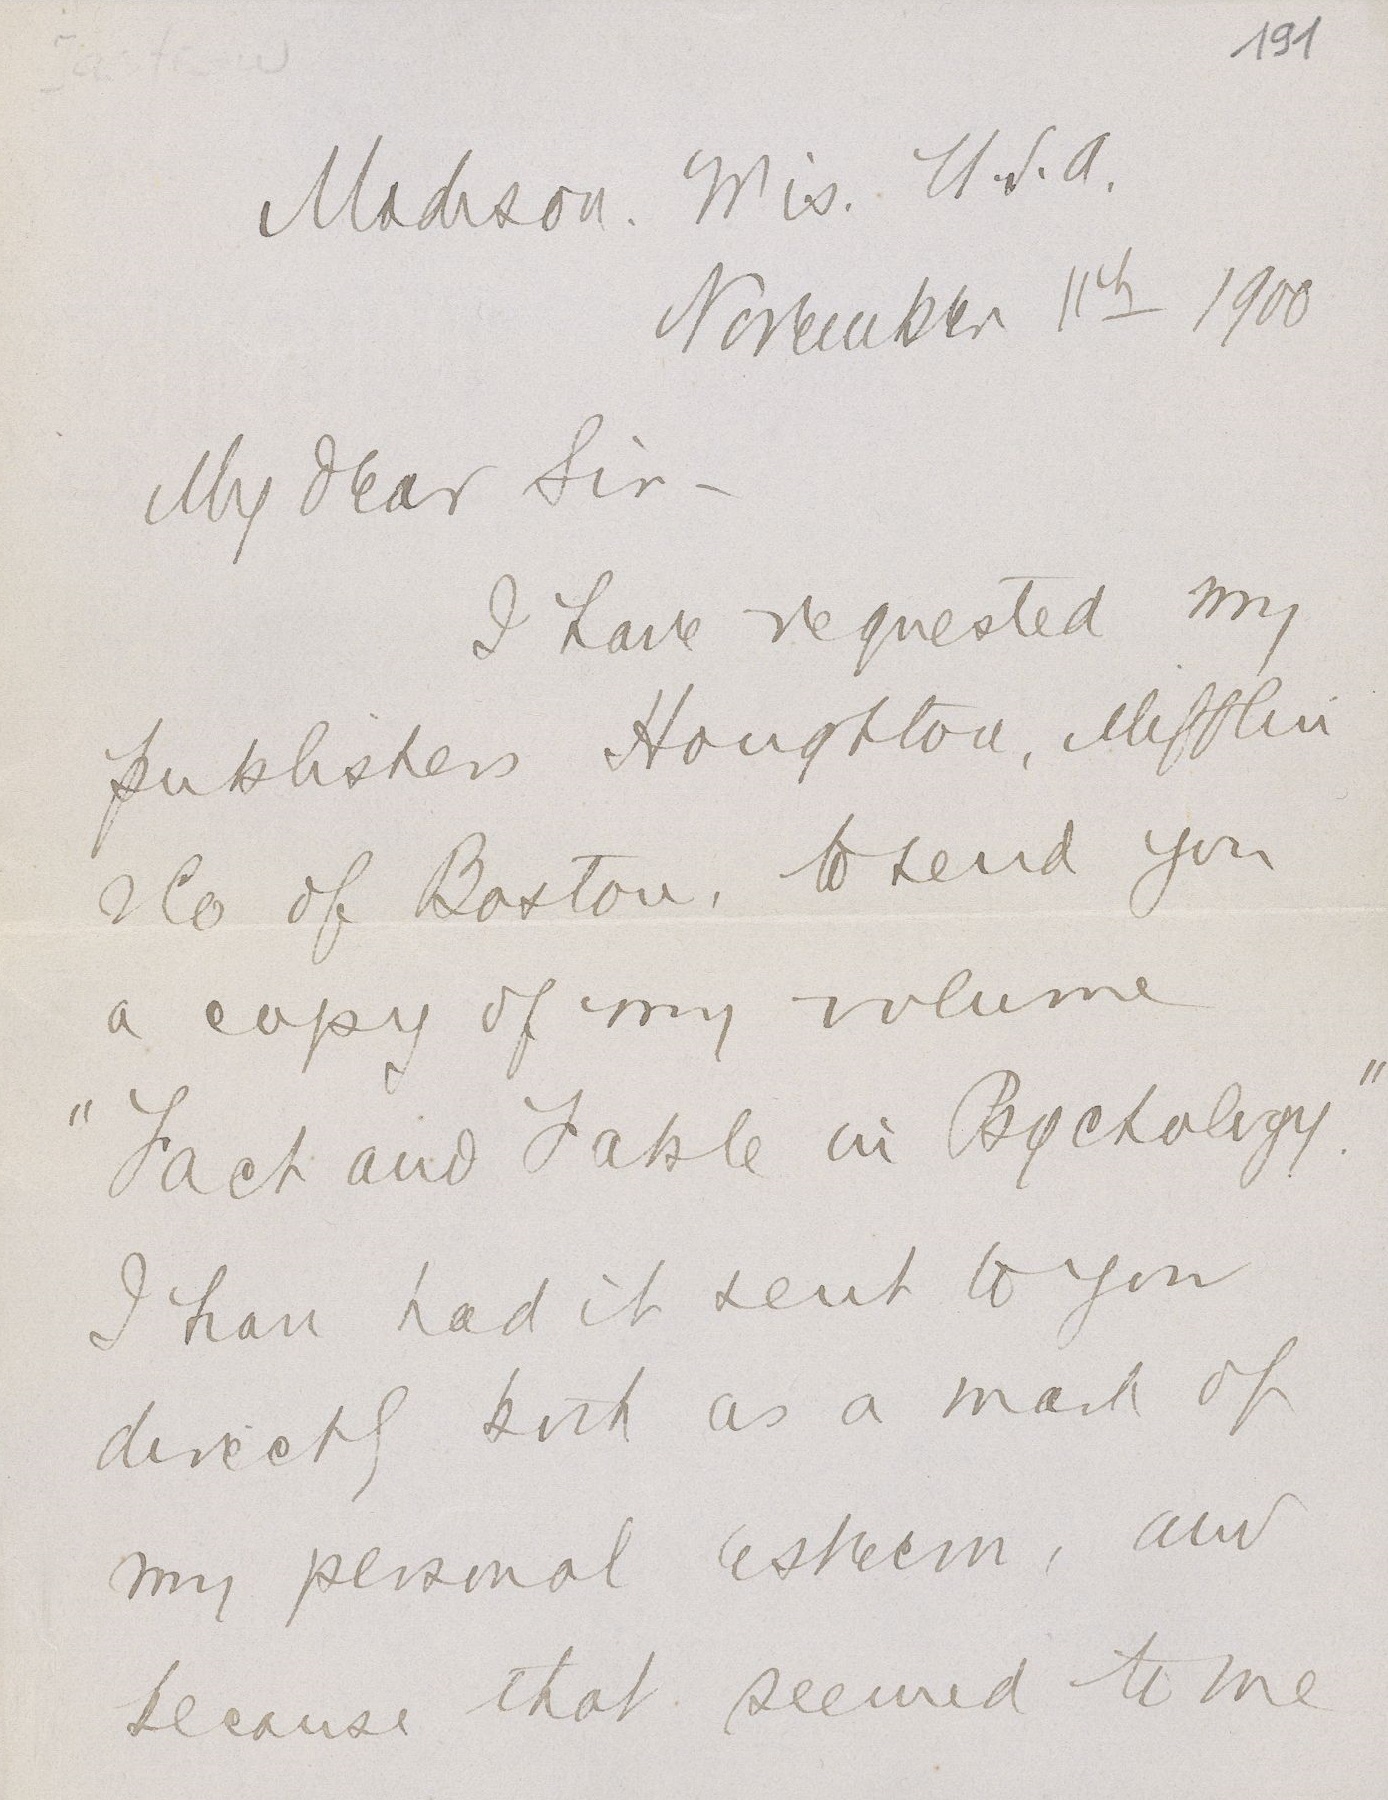 191
Madison. Wis. U.S.A.
November 11th 1900
My dear Sir -
I have requested my
publishers Houghton, Mifflin
& Co of Boston, to send you
a copy of my volume
"Fact and Fable in Psychology."
I have had it sent to you
directly both as a mark of
my personal esteem, and
because that seemed to me